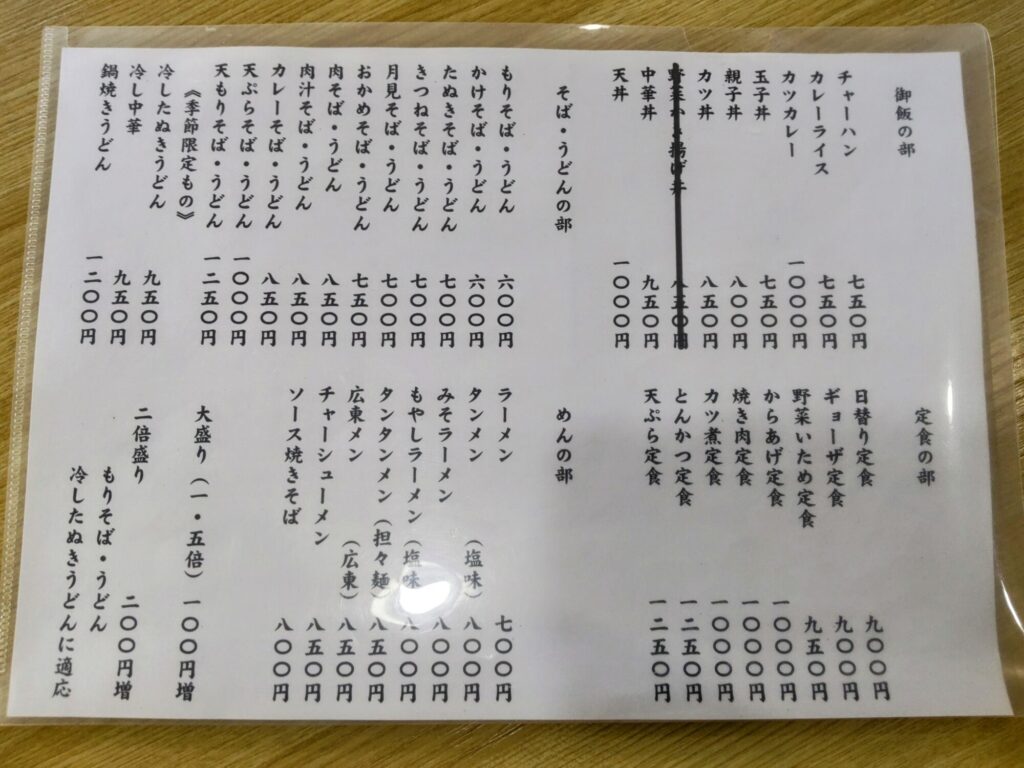 御飯の部
チャーハン 七五〇円
カレーライス 七五〇円
カツカレー 一〇〇〇円
玉子丼 七五〇円
親子丼 八〇〇円
カツ丼 八五〇円
野菜かき揚げ丼 八五〇円
中華丼 九五〇円
天丼 一〇〇〇円
そば・うどんの部
もりそば・うどん 六〇〇円
かけそば・うどん 六〇〇円
たぬきそば・うどん 七〇〇円
きつねそば・うどん 七〇〇円
月見そば・うどん 七〇〇円
おかめそば・うどん 七五〇円
肉そば・うどん 八五〇円
肉汁そば・うどん 八五〇円
カレーそば・うどん 八五〇円
天ぷらそば・うどん 一〇〇〇円
天もりそば・うどん 一二五〇円
《季節限定もの》
冷したぬきうどん 九五〇円
冷し中華 九五〇円
鍋焼きうどん 一二〇〇円
定食の部
日替り定食 九〇〇円
ギョーザ定食 九〇〇円
野菜いため定食 九五〇円
からあげ定食 一〇〇〇円
焼き肉定食 一〇〇〇円
カツ煮定食 一〇〇〇円
とんかつ定食 一二五〇円
天ぷら定食 一二五〇円
めんの部
ラーメン 七〇〇円
タンメン（塩味） 八〇〇円
みそラーメン 八〇〇円
もやしラーメン（塩味） 八〇〇円
タンタンメン（担々麺） 八五〇円
広東メン（広東） 八五〇円
チャーシューメン 八五〇円
ソース焼きそば 八〇〇円
大盛り（一・五倍） 一〇〇円増
二倍盛り 二〇〇円増
もりそば・うどん
冷したぬきうどんに適応